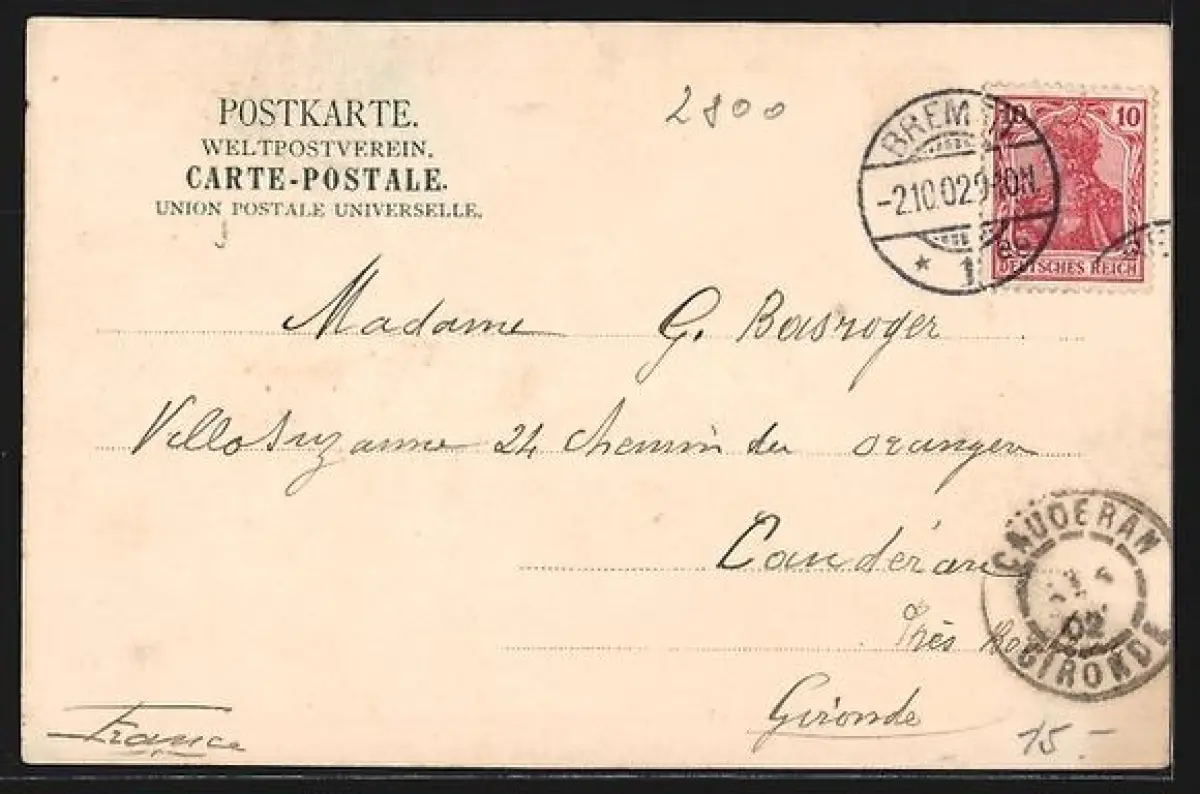 POSTKARTE.
WELTPOSTVEREIN.
CARTE-POSTALE.
UNION POSTALE UNIVERSELLE.
2800
BREMEN
-2.10.02 9-10N.
* 1
10 10
DEUTSCHES REICH
Madame G. Basroger
Villa Suzanne 24 chemin des oranger
Caudéran
CAUDERAN
02
GIRONDE
Près
Gironde
France
15.-